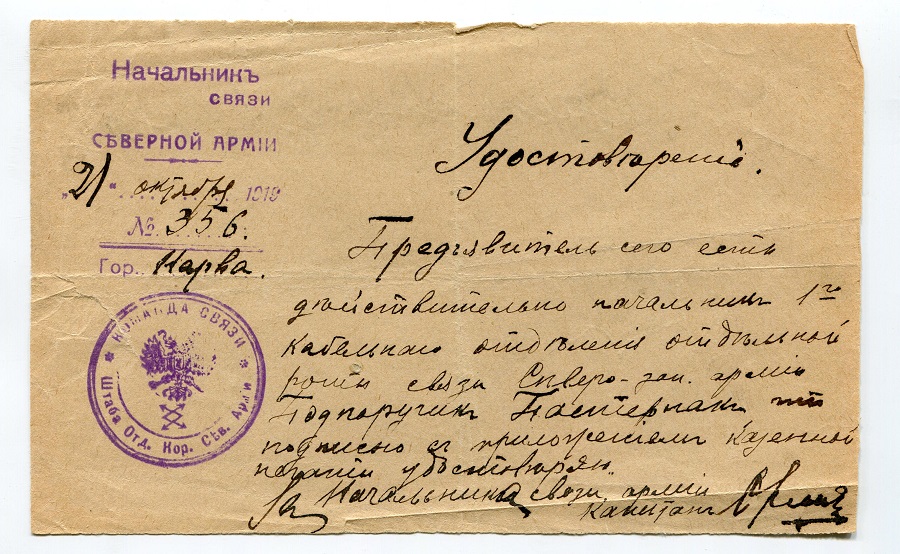 Начальникъ
связи
СѢВЕРНОЙ АРМІИ
„21“ октября 1919
№ 356.
Гор. Нарва.
КОМАНДА СВЯЗИ
Штаба Отд. Кор. Сѣв. Арміи
Удостовѣреніе.
Предъявитель сего есть
дѣйствительно начальникъ 1го
кабельнаго отдѣленія отдѣльной
роты связи Сѣверо-зап. арміи
Подпоручикъ Пастернакъ что
подписью съ приложеніемъ казенной
печати удостовѣряю.
За Начальника связи арміи
Капитанъ